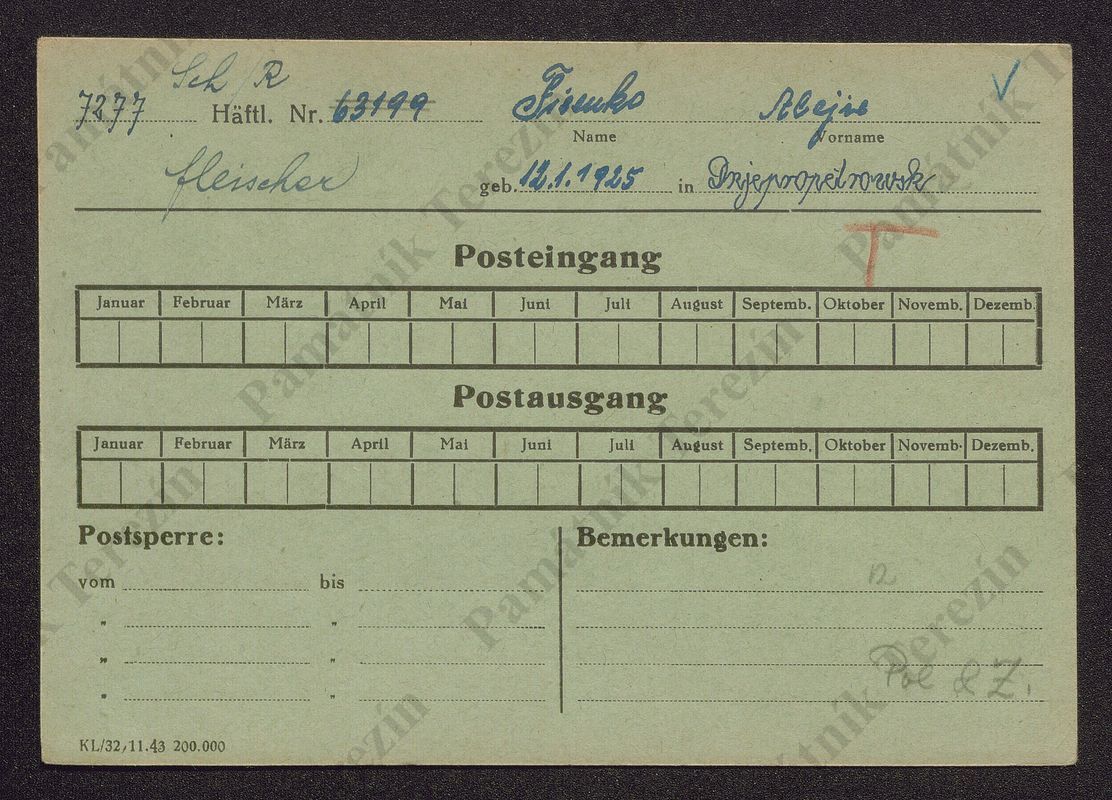 Sch/R
7277 Häftl. Nr. 63199 Fisenko Alejse
Name Vorname
fleischer geb. 12.1.1925 in Dnjepropetrowsk
T
Posteingang
Januar Februar März April Mai Juni Juli August Septemb. Oktober Novemb. Dezemb.
Postausgang
Januar Februar März April Mai Juni Juli August Septemb. Oktober Novemb. Dezemb.
Postsperre: Bemerkungen:
vom bis
" "
" "
" "
Pol & Z.
KL/32,11.43 200.000
Památník Terezín